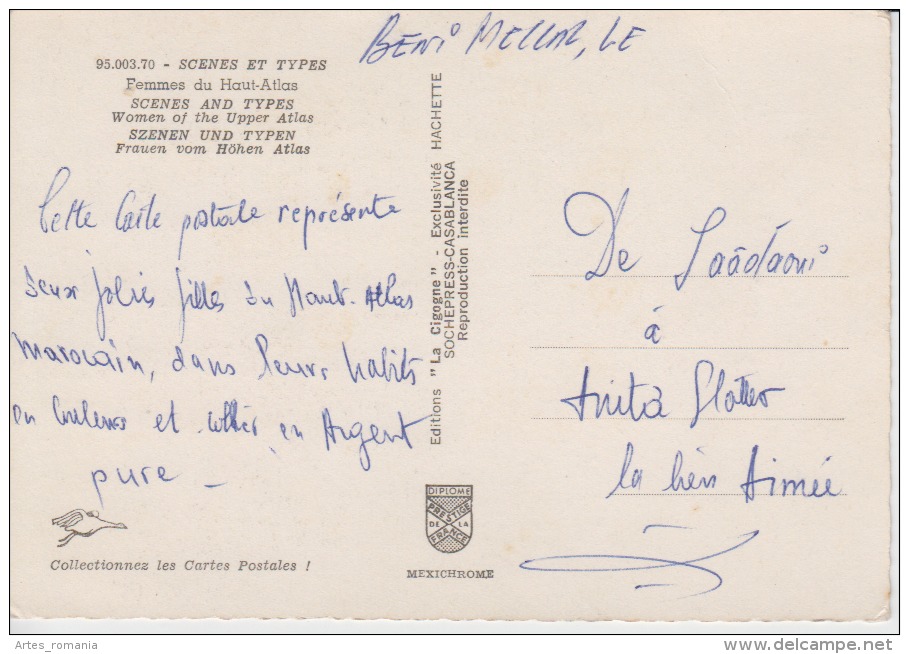 Beni Mellal, Le
95.003.70 - SCENES ET TYPES
Femmes du Haut-Atlas
SCENES AND TYPES
Women of the Upper Atlas
SZENEN UND TYPEN
Frauen vom Höhen Atlas
Cette Carte postale représente
deux jolies filles du Haut-Atlas
marocain, dans leurs habits
en couleurs et collier en Argent
pure _
Editions "La Cigogne" - Exclusivité HACHETTE
SOCHEPRESS-CASABLANCA
Reproduction interdite
De Saâdaoui
à
Anita Flatter
la bien Aimée
DIPLOME
PRESTIGE
DE LA
FRANCE
MEXICHROME
Collectionnez les Cartes Postales !
Artes_romania
www.delcampe.net